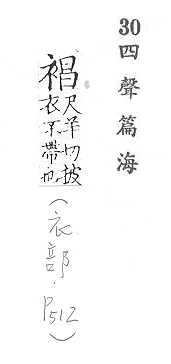 30四聲篇海
裮
尺羊切披
衣不帶也
(衣部.P512)